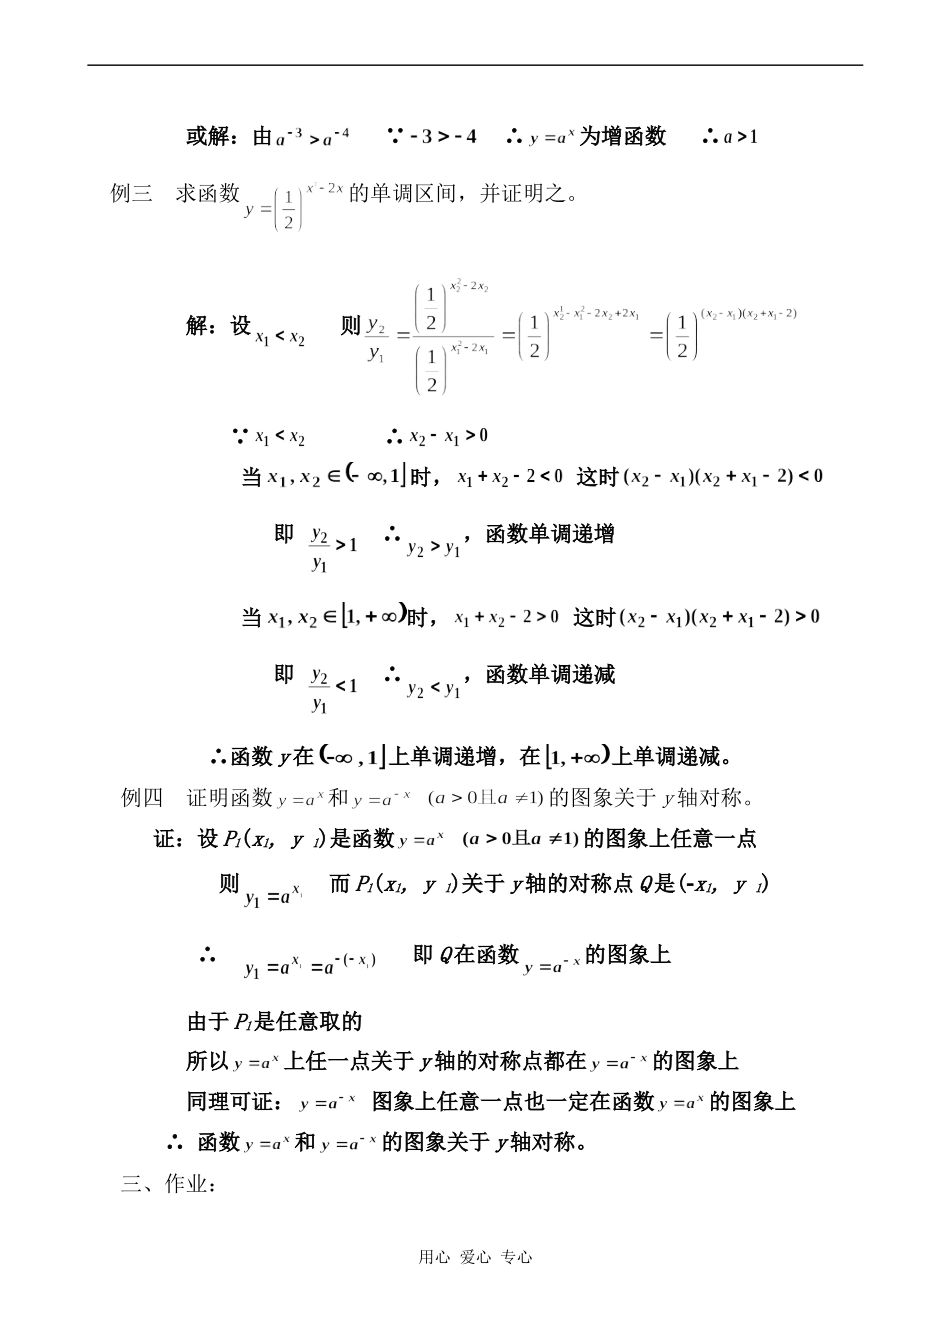 或解：由 a⁻³ > a⁻⁴ ∵ -3 > -4 ∴ y = aˣ 为增函数 ∴ a > 1
例三 求函数 y = (1/2)^(x²-2x) 的单调区间，并证明之。
解：设 x₁ < x₂ 则 y₂/y₁ = (1/2)^(x₂²-2x₂) / (1/2)^(x₁²-2x₁) = (1/2)^(x₂²-x₁²-2x₂+2x₁) = (1/2)^((x₂-x₁)(x₂+x₁-2))
∵ x₁ < x₂ ∴ x₂ - x₁ > 0
当 x₁, x₂ ∈ (-∞,1] 时， x₁ + x₂ - 2 < 0 这时 (x₂ - x₁)(x₂ + x₁ - 2) < 0
即 y₂/y₁ > 1 ∴ y₂ > y₁ ，函数单调递增
当 x₁, x₂ ∈ [1,+∞) 时， x₁ + x₂ - 2 > 0 这时 (x₂ - x₁)(x₂ + x₁ - 2) > 0
即 y₂/y₁ < 1 ∴ y₂ < y₁ ，函数单调递减
∴函数 y 在 (-∞,1] 上单调递增，在 [1,+∞) 上单调递减。
例四 证明函数 y = aˣ 和 y = a⁻ˣ (a > 0且a ≠ 1) 的图象关于 y 轴对称。
证：设 P₁(x₁, y₁)是函数 y = aˣ (a > 0且a ≠ 1) 的图象上任意一点
则 y₁ = a^(x₁) 而 P₁(x₁, y₁)关于 y 轴的对称点 Q 是(-x₁, y₁)
∴ y₁ = a^(x₁) = a^(-(-x₁)) 即 Q 在函数 y = a⁻ˣ 的图象上
由于 P₁ 是任意取的
所以 y = aˣ 上任一点关于 y 轴的对称点都在 y = a⁻ˣ 的图象上
同理可证： y = a⁻ˣ 图象上任意一点也一定在函数 y = aˣ 的图象上
∴ 函数 y = aˣ 和 y = a⁻ˣ 的图象关于 y 轴对称。
三、作业：
用心 爱心 专心